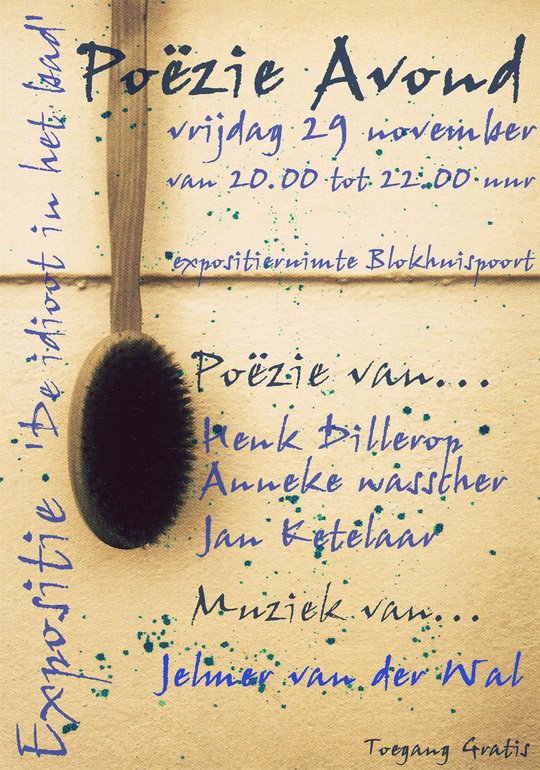 Poëzie Avond
vrijdag 29 november
van 20.00 tot 22.00 uur
expositieruimte Blokhuispoort
Poëzie van...
Henk Dillerop
Anneke wassther
Jan Ketelaar
Muziek van...
Jelmer van der Wal
Toegang Gratis
Expositie 'De idioot in het bad'